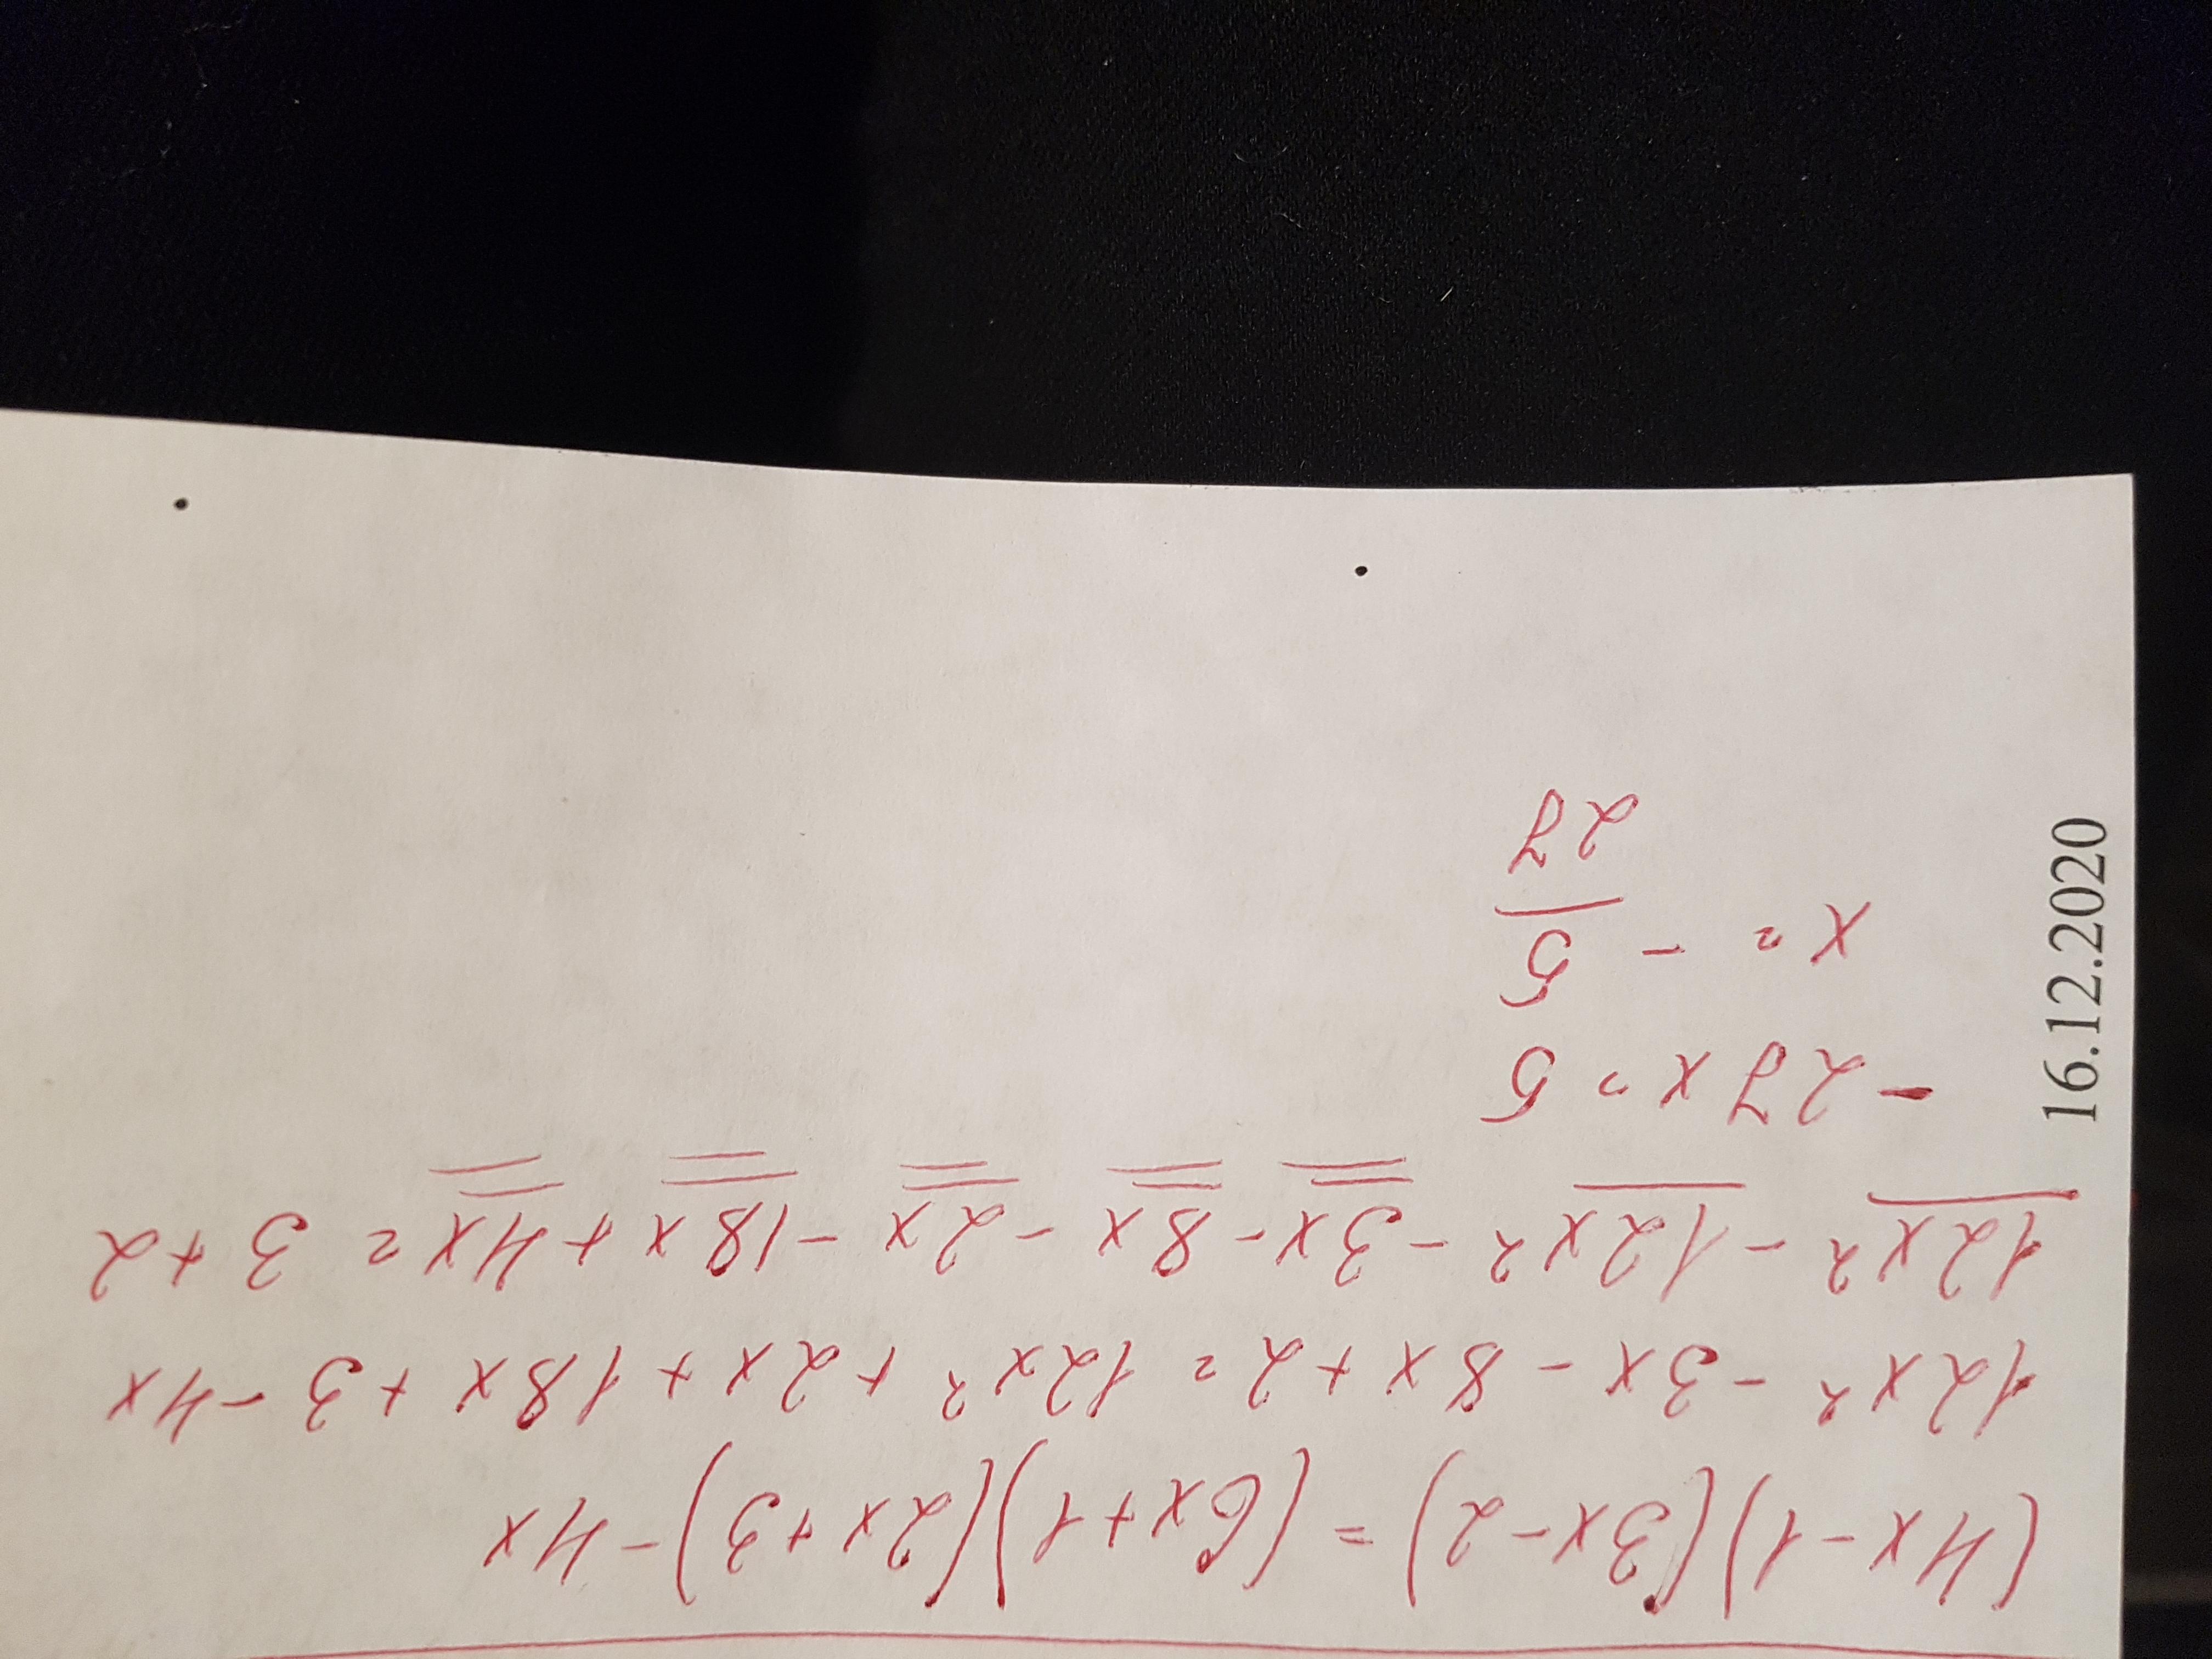 (4x-1)(3x-2) = (6x+1)(2x+3)-4x
12x² - 3x - 8x + 2 = 12x² + 2x + 18x + 3 - 4x
12x² - 12x² - 3x - 8x - 2x - 18x + 4x = 3 + 2
-27x = 5
x = - 5/27
16.12.2020